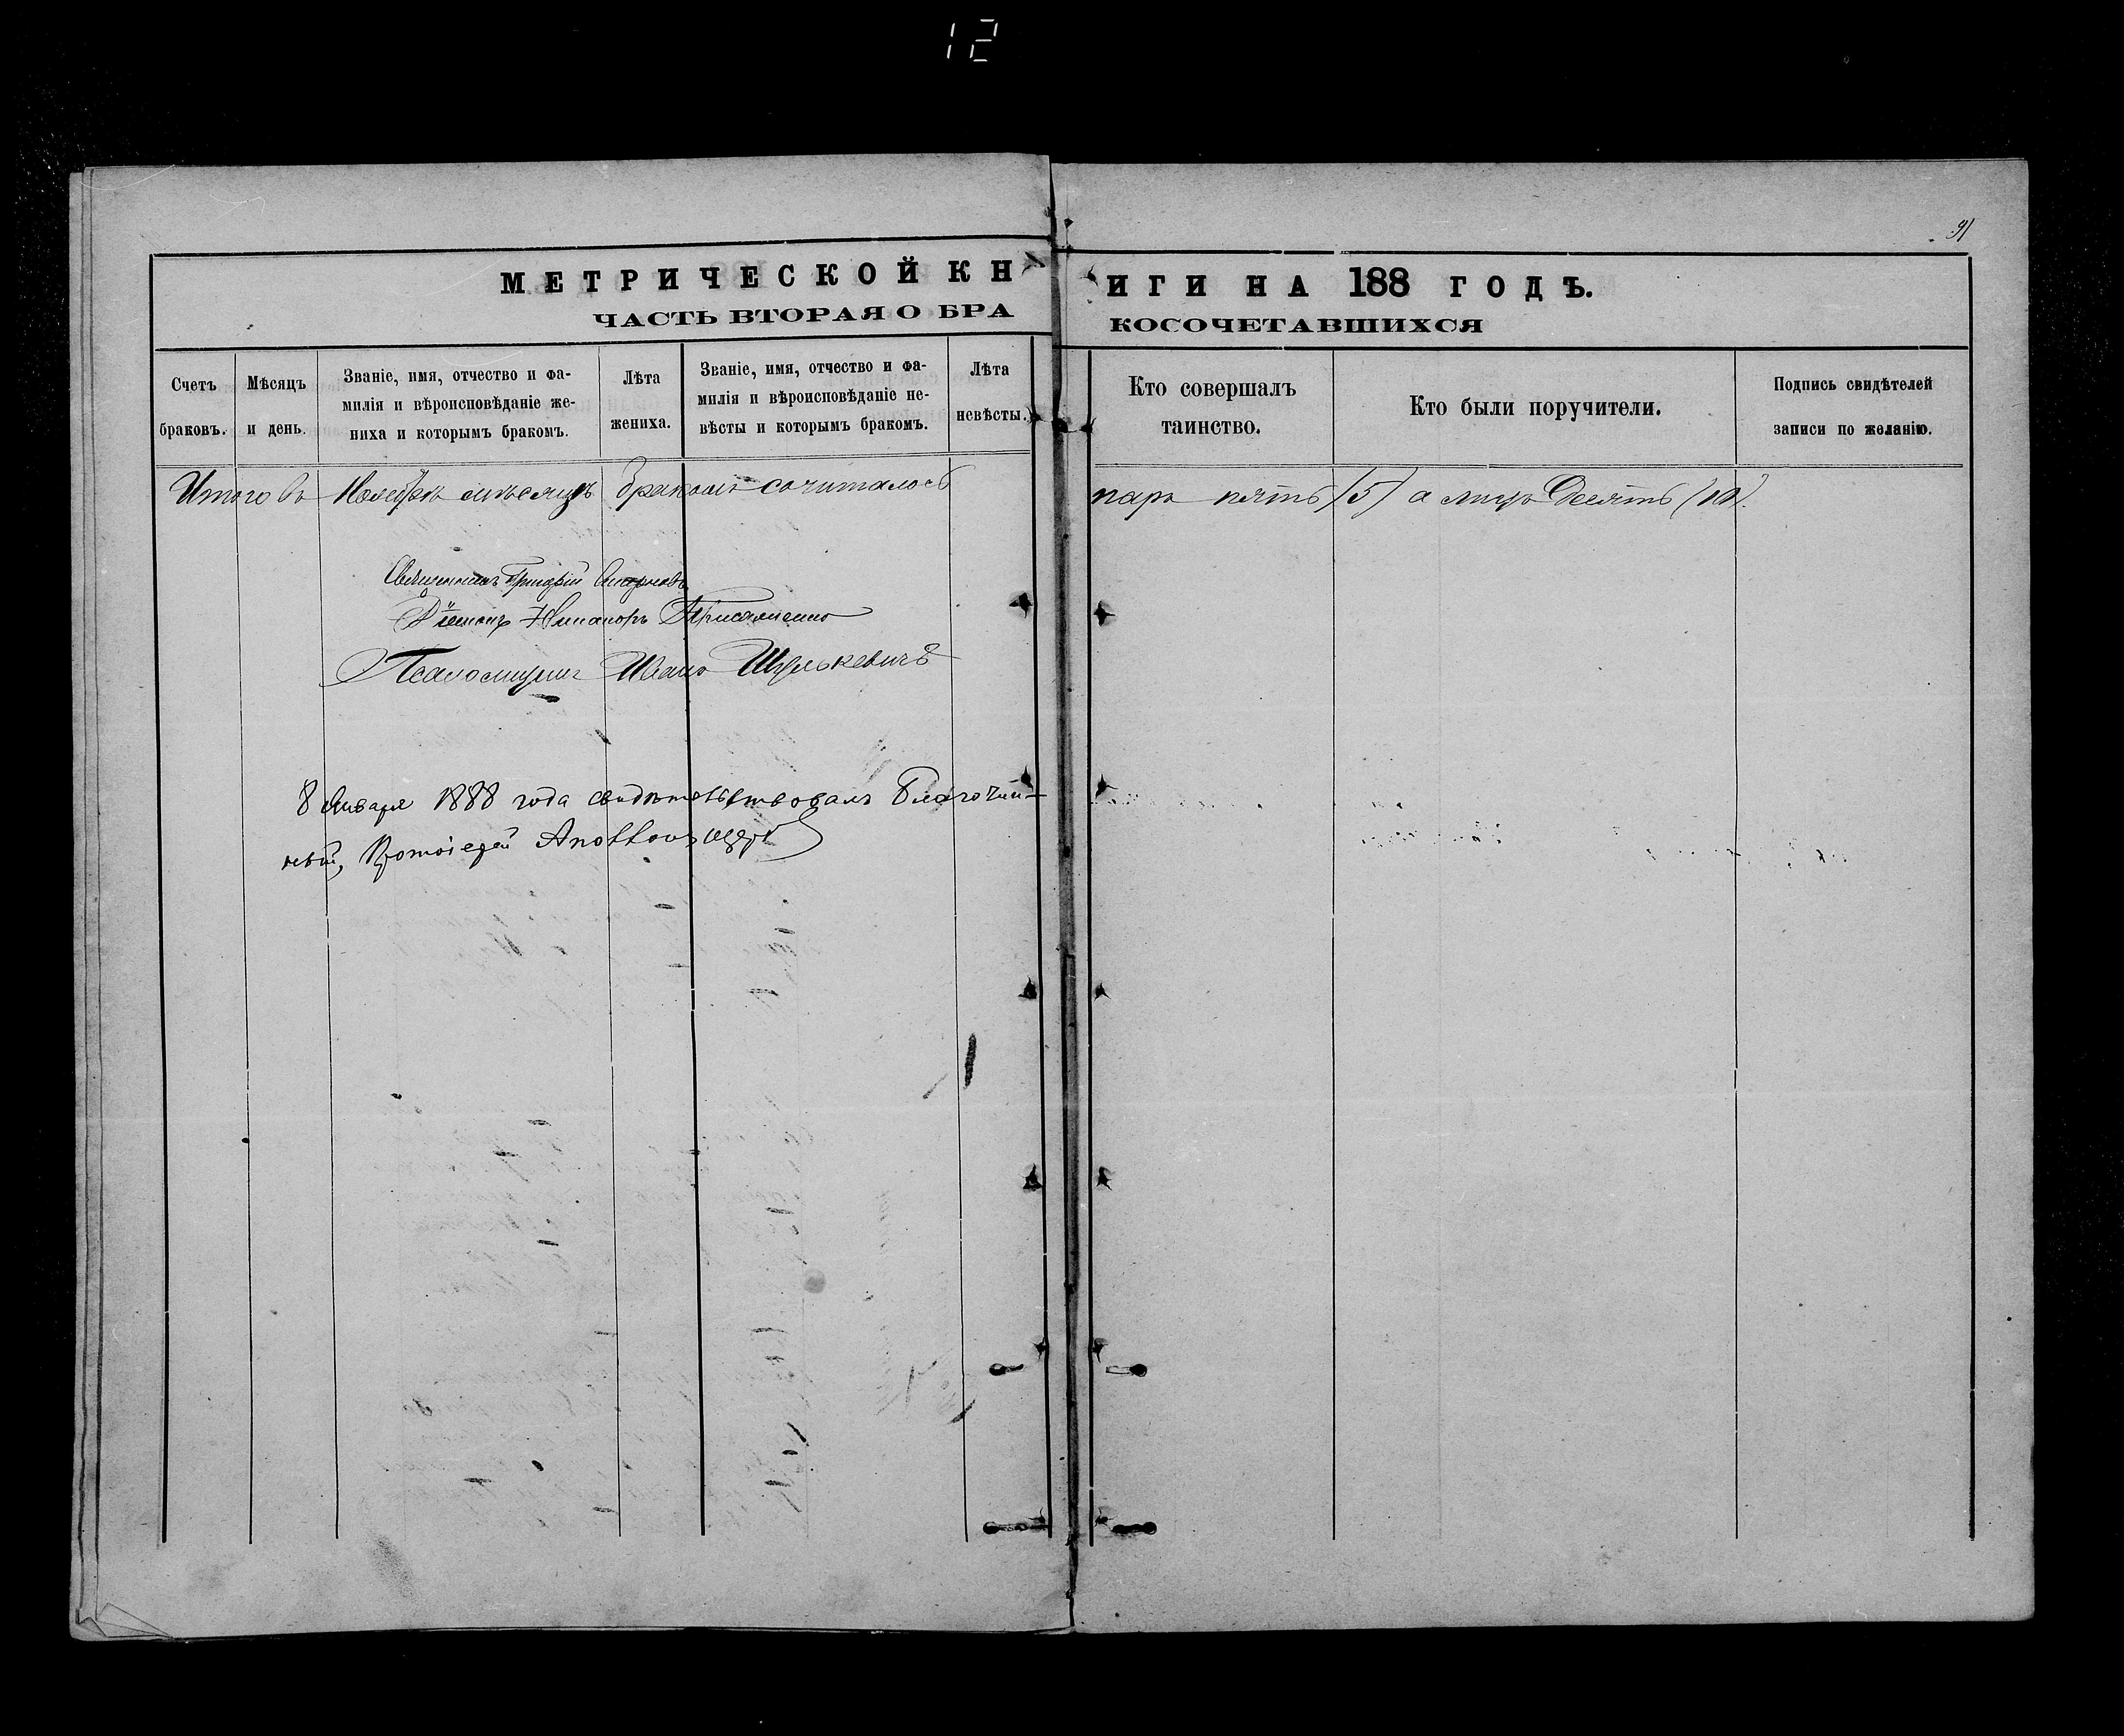 12
МЕТРИЧЕСКОЙ КНИГИ НА 188 ГОДЪ.
ЧАСТЬ ВТОРАЯ О БРАКОСОЧЕТАВШИХСЯ
Счетъ браковъ.
Мѣсяцъ и день.
Званіе, имя, отчество и фа-
милія и вѣроисповѣданіе же-
ниха и которымъ бракомъ.
Лѣта жениха.
Званіе, имя, отчество и фа-
милія и вѣроисповѣданіе не-
вѣсты и которымъ бракомъ.
Лѣта невѣсты.
Кто совершалъ
таинство.
Кто были поручители.
Подпись свидѣтелей
записи по желанію.
Итого въ Ноябрѣ мѣсяцѣ бракомъ сочиталось паръ пять (5) а лицъ десять (10).
Священникъ Григорій
Діаконъ Никаноръ
Псаломщикъ Иванъ Шулькевичъ
8 Января 1888 года свидѣтельствовалъ Благочин-
ный, Протоіерей